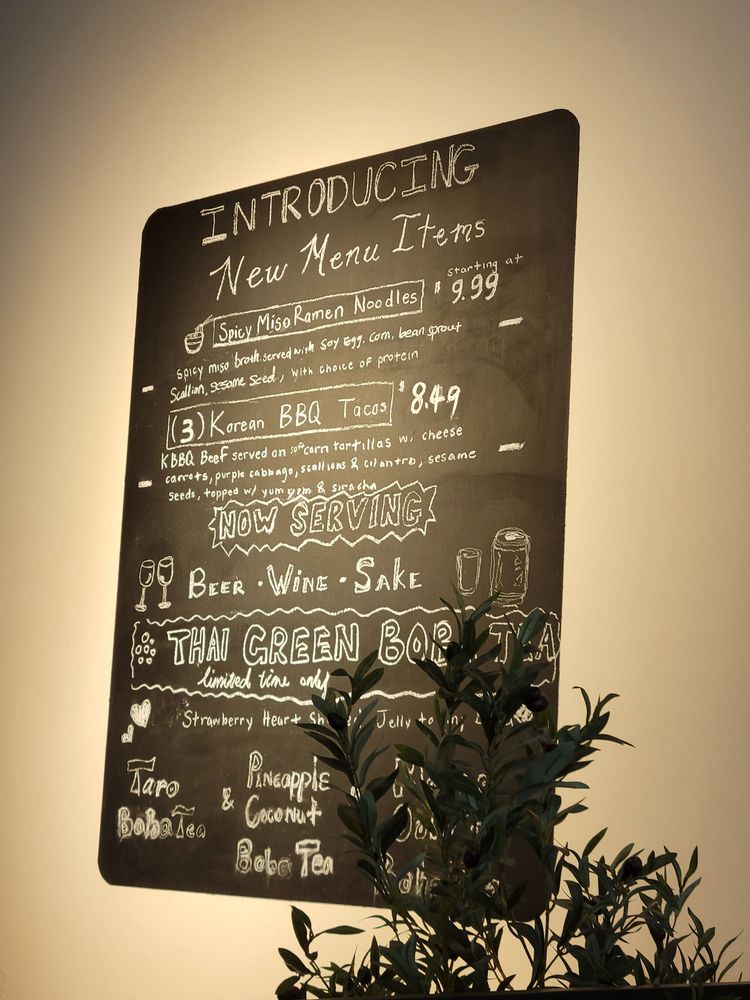 INTRODUCING
New Menu Items
starting at
Spicy Miso Ramen Noodles $9.99
Spicy miso broth served with Soy Egg, corn, bean sprout
Scallion, Sesame Seed, with choice of protein
(3) Korean BBQ Tacos $8.49
KBBQ Beef served on soft corn tortillas w/ cheese
carrots, purple cabbage, scallions & cilantro, sesame
seeds, topped w/ yum yum & siracha
NOW SERVING
BEER · WINE · SAKE
THAI GREEN BOB TEA
limited time only
Strawberry Heart Jelly
Taro
Boba Tea
& Pineapple
Coconut
Boba Tea